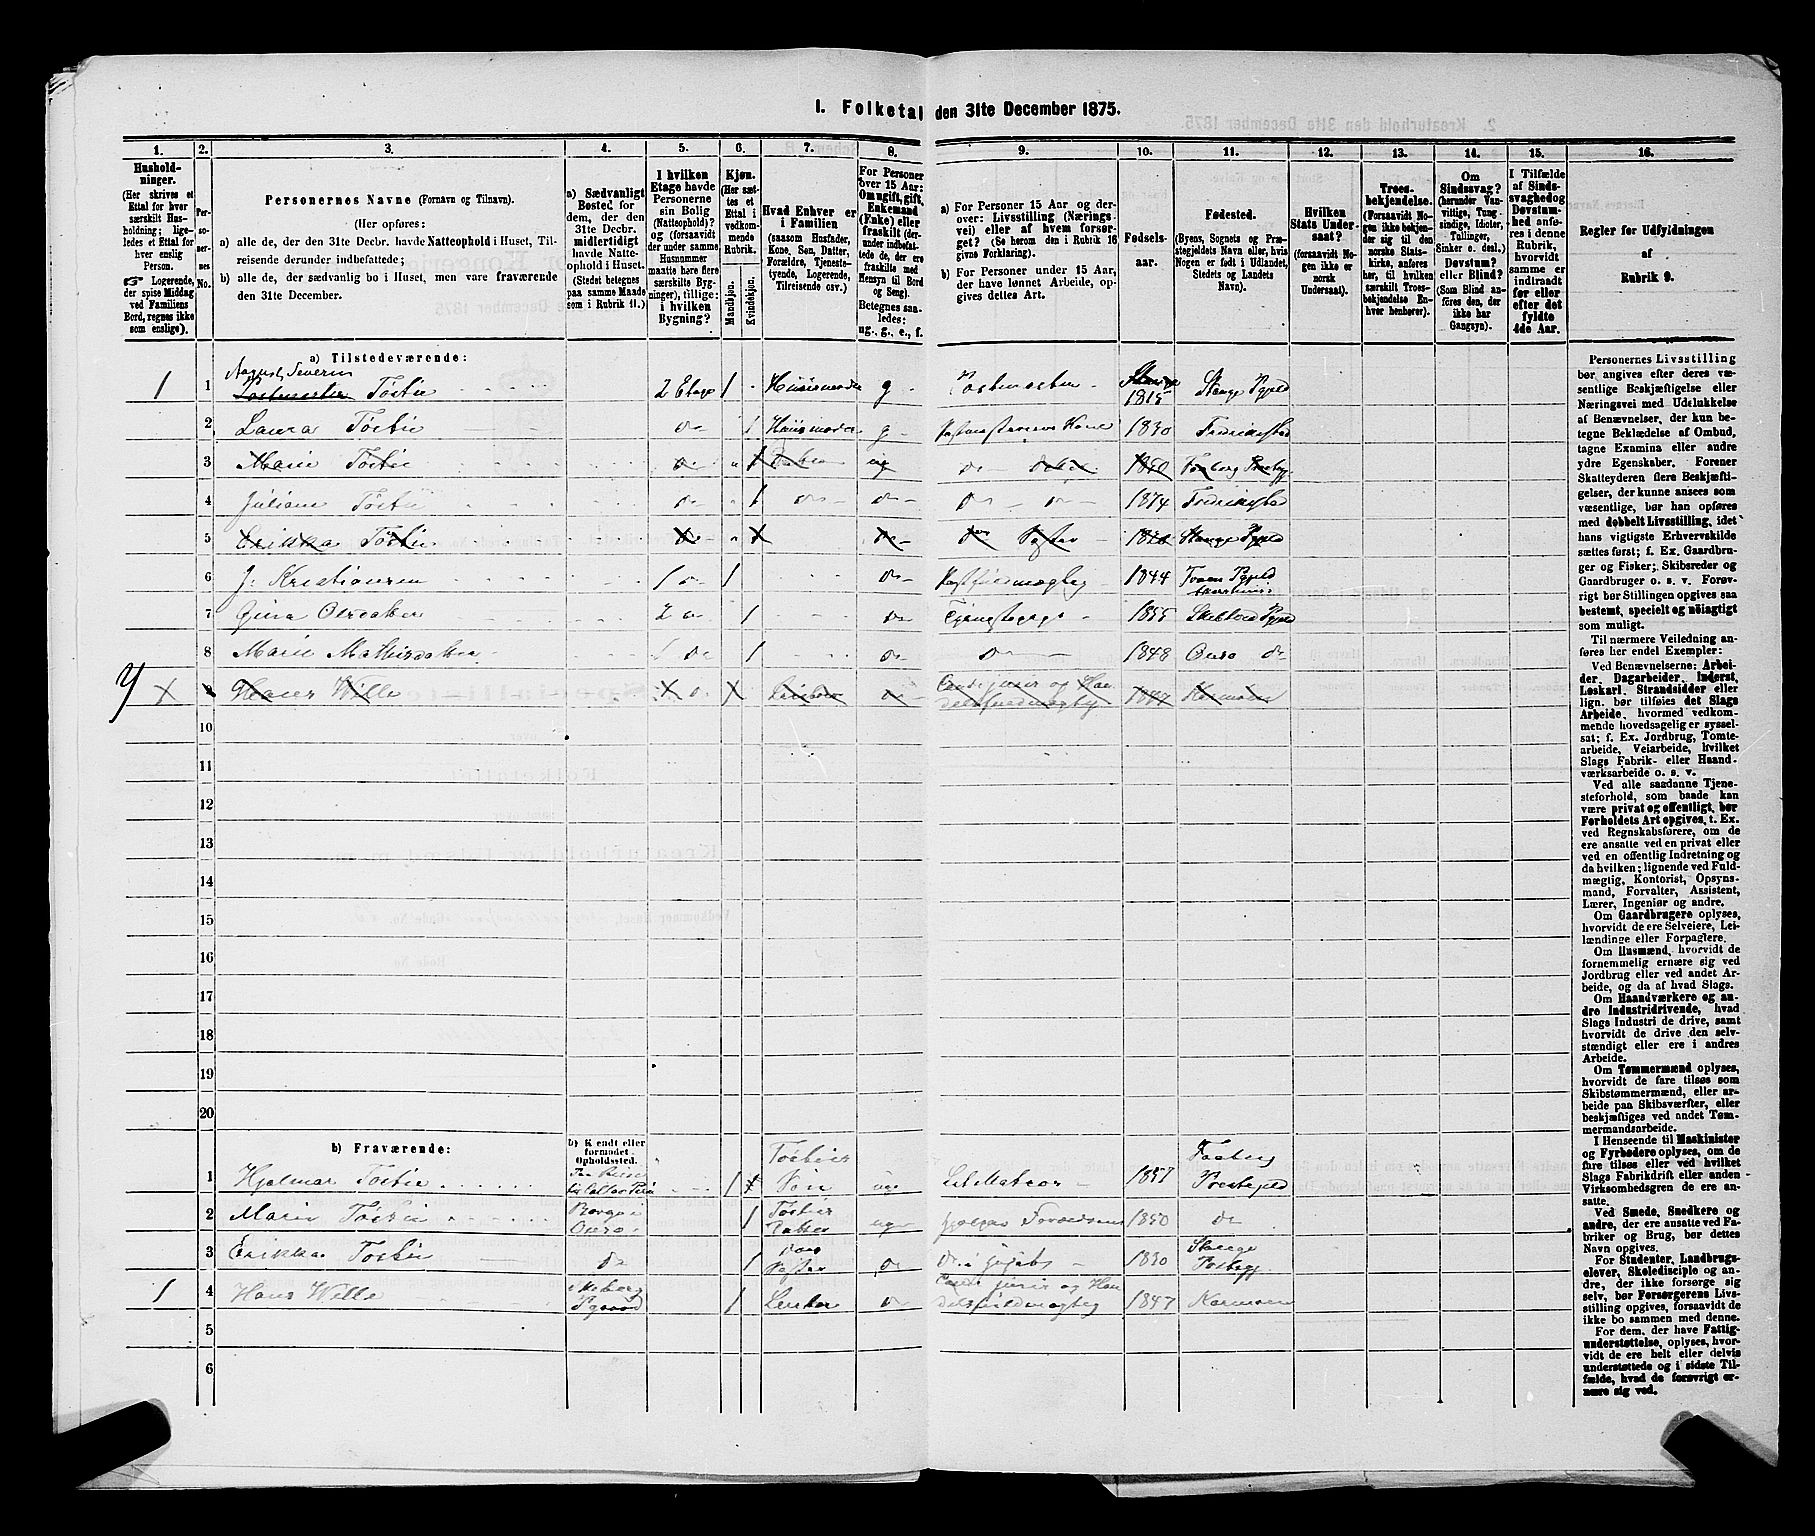 I. Folketal den 31te December 1875.
1. 2. 3. 4. 5. 6. 7. 8. 9. 10. 11. 12. 13. 14. 15. 16.
Hushold-
ninger.
(Her skrives et
Ettal for hver
særskilt Hus-
holdning; lige-
ledes et Ettal for
hver enslig
Person.
☞ Logerende,
der spise Middag
ved Familiens
Bord, regnes ikke
som enslige).
Per-
so-
ner-
nes
No.
Personernes Navne (Fornavn og Tilnavn).
(Her opføres:
a) alle de, der den 31te Decbr. havde Natteophold i Huset, Til-
reisende derunder indbefattede;
b) alle de, der sædvanlig bo i Huset, men vare fraværende
den 31te December.
a) Sædvanligt
Bosted for
dem, der den
31te Decbr.
midlertidigt
havde Natte-
ophold i Huset.
(Stedet betegnes
paa samme Maade
som i Rubrik 11.)
I hvilken
Etage havde
Personerne
sin Bolig
(Natteophold)?
og (forsaavidt
der under samme
Husnummer
maatte høre flere
særskilte Byg-
ninger), tillige:
i hvilken
Bygning?
Kjøn.
(Her sæt-
tes et
Ettal i
vedkom-
mende
Rubrik.
Mandkjøn.
Kvindekjøn.
Hvad Enhver er
i Familien
(saasom Husfader,
Kone, Søn, Datter,
Forældre, Tjeneste-
tyende, Logerende,
Tilreisende osv.)
For Personer
over 15 Aar:
Om ugift, gift,
Enkemand
(Enke) eller
fraskilt (der-
under indbefat-
tede de, der
ere fraskilte med
Hensyn til Bord
og Seng).
Betegnes saa-
ledes:
ug., g., e., f.
a) For Personer 15 Aar og der-
over: Livsstilling (Nærings-
vei) eller af hvem forsør-
get? (Se herom den i Rubrik 16
givne Forklaring).
b) For Personer under 15 Aar,
der have lønnet Arbeide, op-
gives dettes Art.
Fødsels-
aar.
Fødested.
(Byens, Sognets og Præ-
stegjeldets Navn eller, hvis
Nogen er født i Udlandet,
Stedets og Landets
Navn).
Hvilken
Stats Under-
saat?
(forsaavidt No-
gen ikke er
norsk
Undersaat).
Troes-
bekjendelse.
(Forsaavidt No-
gen ikke bekjen-
der sig til den
norske Stats-
kirke, anføres
her, til hvilken
særskilt Troes-
bekjendelse En-
hver henhører).
Om
Sindssvag?
(herunder Van-
vittige, Tung-
sindige, Idioter,
Tullinger,
Sinker o. desl.)
Døvstum?
eller Blind?
(Som Blind an-
føres den, der
ikke har
Gangsyn).
I Tilfælde
af Sinds-
svaghed og
Døvstum-
hed anfø-
res i denne
Rubrik,
hvorvidt
samme er
indtraadt
før eller
efter det
fyldte
4de Aar.
Regler for Udfyldningen
af
Rubrik 9.
a) Tilstedeværende:
August Severin
1 1 Postmester Tostie 2 Etage 1 Huusfader g Postmester 1815 Stange Pgjeld
2 Laura Tostie do 1 Huusmoder g Postmesterens Kone 1830 Fredrikstad
3 Marie Tostie do 1 Datter ug do 1850
4 Juliane Tostie do 1 do do do do 1874 Fredrikstad
5 Erikka Tostie do do Søster Stange Pgjeld
6 J. Kristiansen 1 do 1 do Postfuldmægtig 1844
7 Gina 2 do 1 do Tjenestepige 1855 Pgjeld
8 Marie do 1 do do 1848 Onsø do
9 Hans Wille Logerende do Cand. juris og Han-
delsfuldmægtig 1847 Karmøen
10
11
12
13
14
15
16
17
18
19
20
b) Fraværende:
b) Kjendt eller
formodet
Opholdssted.
1 Hjalmar Tostie 1 Tosties Søn ug Let Matros 1857 Præstegjeld
2 Marie Tostie Onsø 1 Tosties Datter ug hjelper Forældrene 1850 do
3 Erikka Tostie do 1 Søster do 1830 Stange
1 4 Hans Wille 1 do Cand. juris og Han-
delsfuldmægtig 1847 Karmøen
5
6
Personernes Livsstilling
bør angives efter deres væ-
sentlige Beskjæftigelse eller
Næringsvei med Udelukkelse
af Benævnelser, der kun be-
tegne Beklædelse af Ombud,
tagne Examina eller andre
ydre Egenskaber. Forener
Skatteyderen flere Beskjæfti-
gelser, der kunne ansees som
væsentlige, bør han opføres
med dobbelt Livsstilling, idet
hans vigtigste Erhvervskilde
sættes først; f. Ex. Gaardbru-
ger og Fisker; Skibsreder og
Gaardbruger o. s. v. Forøv-
rigt bør Stillingen opgives saa
bestemt, specielt og nøiagtigt
som muligt.
Til nærmere Veiledning an-
føres her endel Exempler:
Ved Benævnelserne: Arbei-
der, Dagarbeider, Inderst,
Løskarl, Strandsidder eller
lign. bør tilføies det Slags
Arbeide, hvormed vedkom-
mende hovedsagelig er syssel-
sat; f. Ex. Jordbrug, Tomte-
arbeide, Veiarbeide, hvilket
Slags Fabrik- eller Haand-
værksarbeide o. s. v.
Ved alle saadanne Tjene-
steforhold, som baade kan
være privat og offentligt, bør
Forholdets Art opgives, t. Ex.
ved Regnskabsførere, om de
ere ansatte ved en privat eller
ved en offentlig Indretning og
da hvilken; lignende ved Fuld-
mægtig, Kontorist, Opsyns-
mand, Forvalter, Assistent,
Lærer, Ingeniør og andre.
Om Gaardbrugere oplyses,
hvorvidt de ere Selveiere, Lei-
lændinge eller Forpagtere.
Om Husmænd, hvorvidt de
fornemmelig ernære sig ved
Jordbrug eller ved andet Ar-
beide, og da af hvad Slags.
Om Haandværkere og an-
dre Industridrivende, hvad
Slags Industri de drive, samt
hvorvidt de drive den selv-
stændigt eller ere i andres
Arbeide.
Om Tømmermænd oplyses,
hvorvidt de fare tilsøs som
Skibstømmermænd, eller ar-
beide paa Skibsværfter, eller
beskjæftiges ved andet Tøm-
mermandsarbeide.
I Henseende til Maskinister
og Fyrbødere oplyses, om de
fare tilsøs eller ved hvilket
Slags Fabrikdrift eller anden
Virksomhedsgren de ere an-
satte.
Ved Smede, Snedkere og
andre, der ere ansatte ved Fa-
briker og Brug, bør dettes
Navn opgives.
For Studenter, Landbrugs-
elever, Skoledisciple og an-
dre, der ikke forsørge sig
selv, bør Forsørgerens Livs-
stilling opgives, forsaavidt de
ikke bo sammen med denne.
For dem, der have Fattig-
understøttelse, oplyses, hvor-
vidt de ere helt eller delvis
understøttede og i sidste Til-
fælde, hvad de forøvrigt er-
nære sig ved.